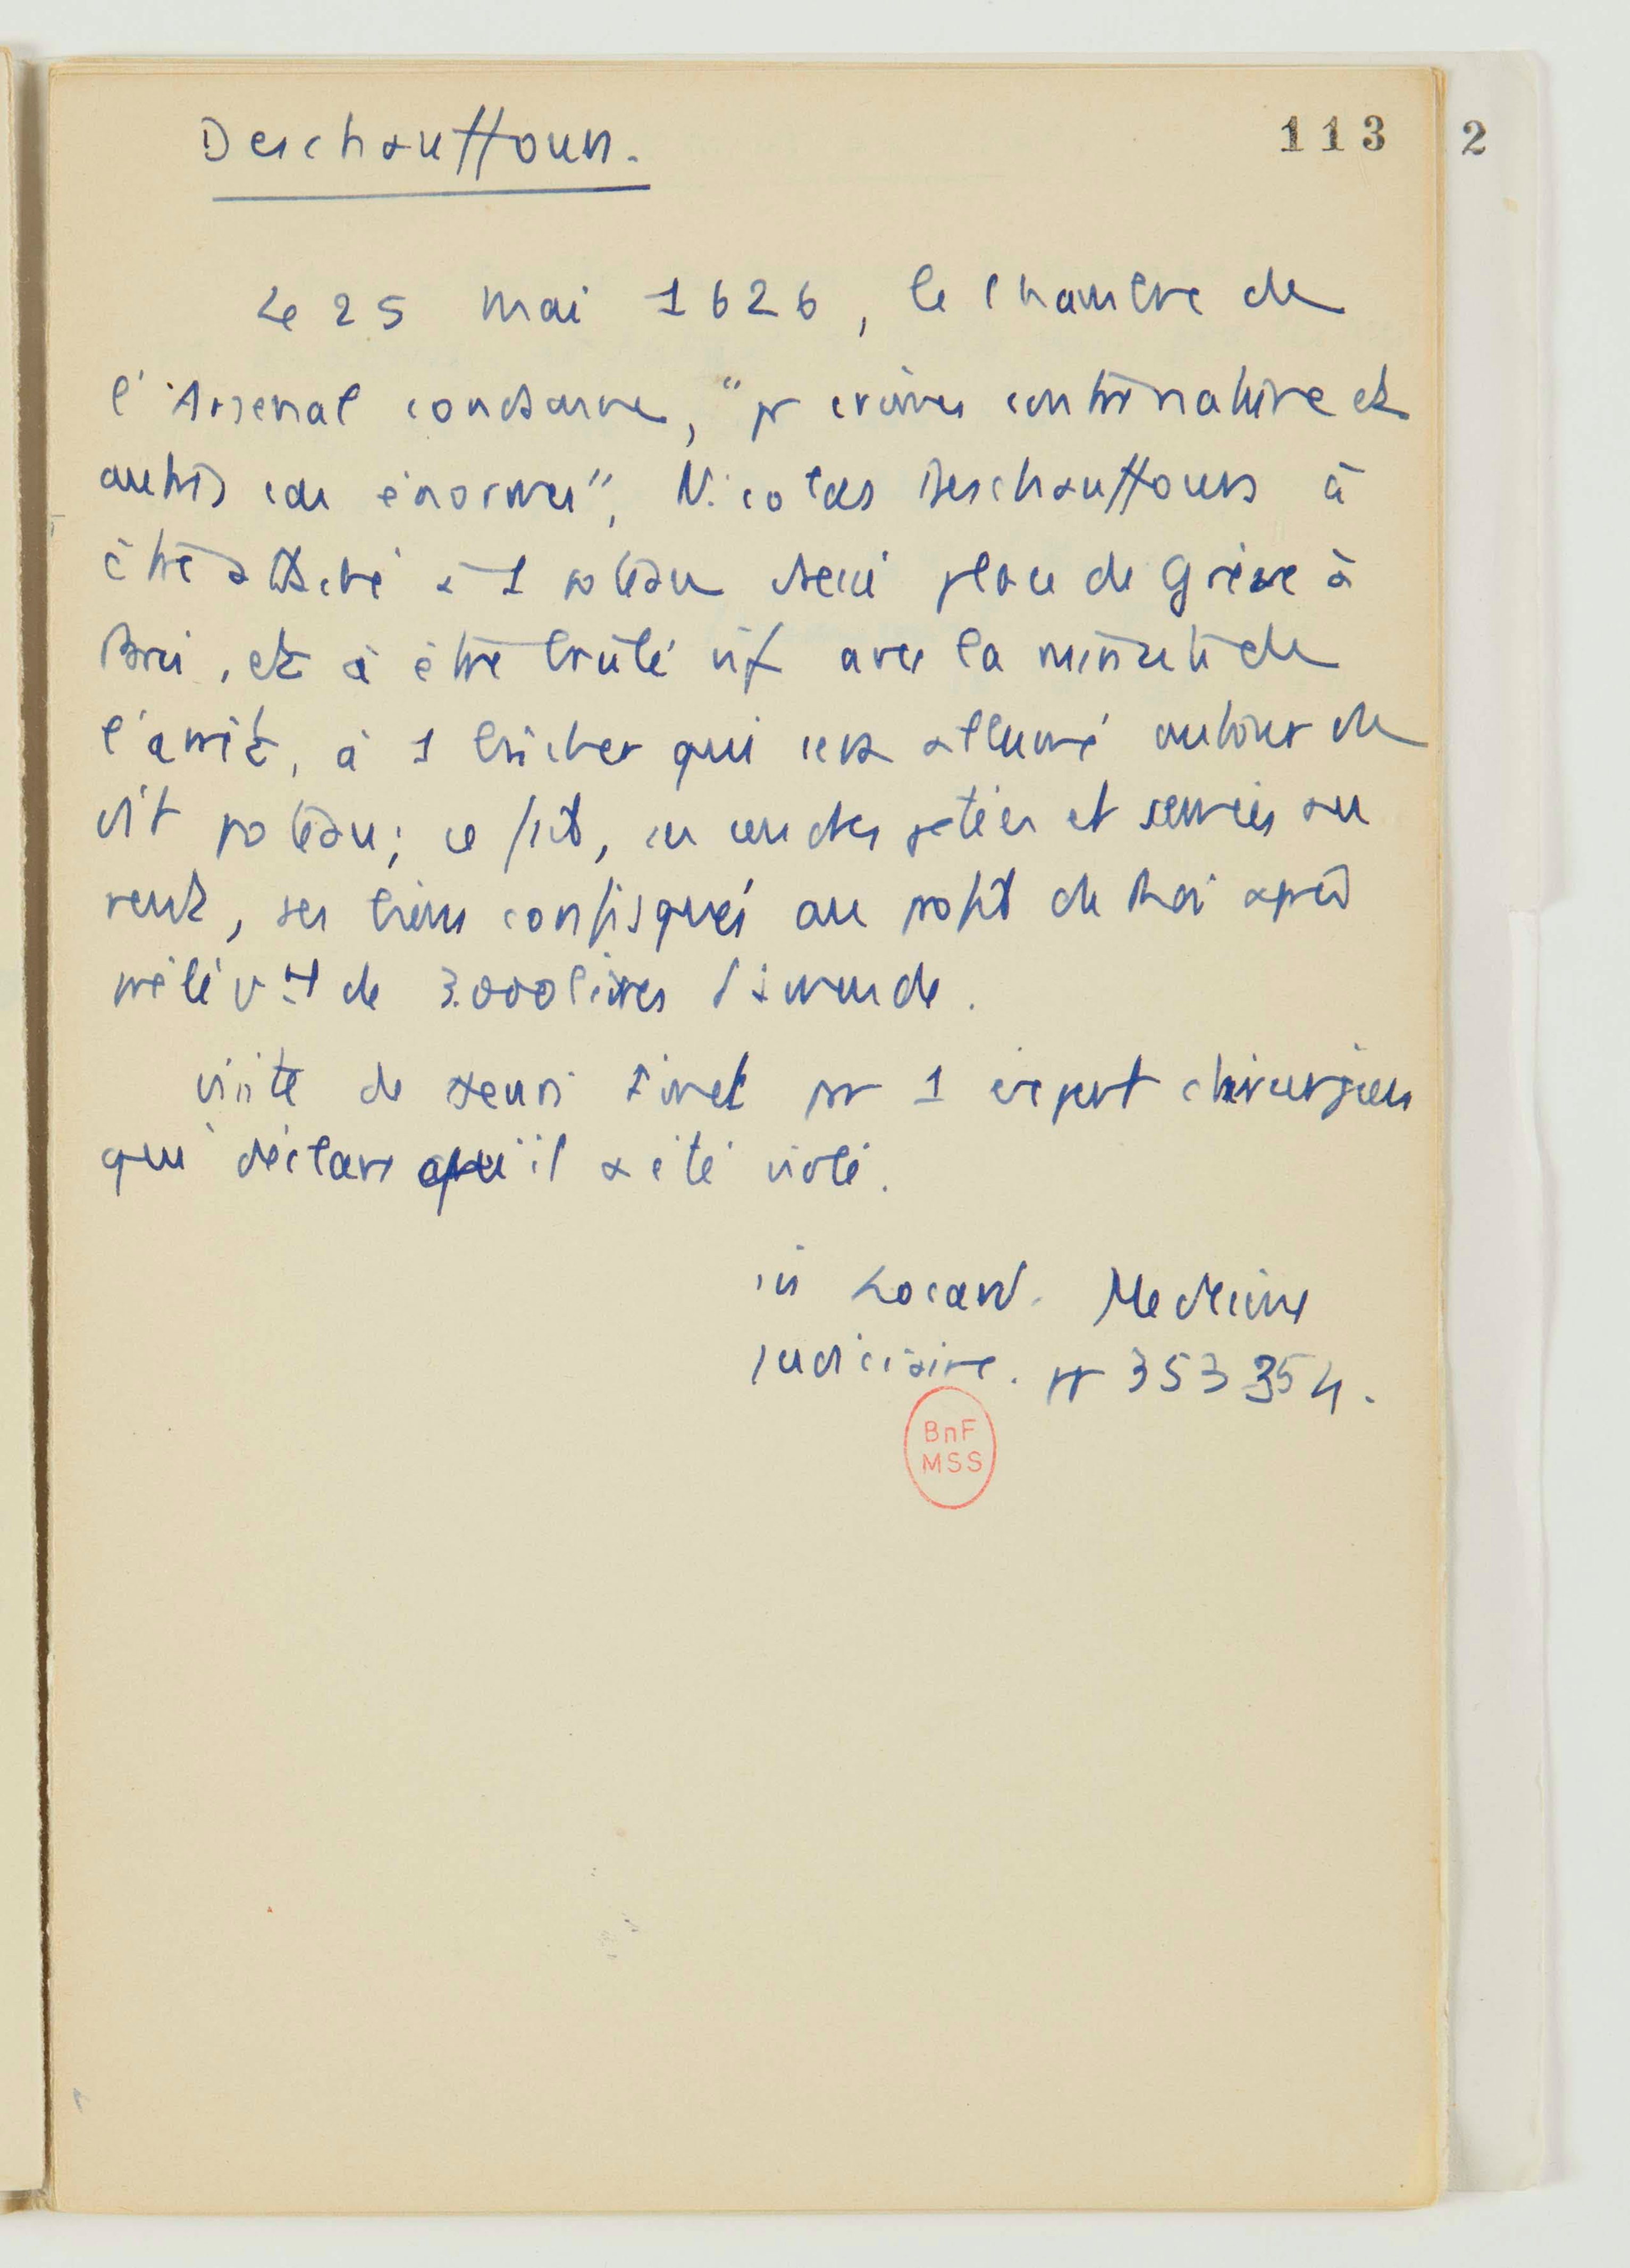 Deschauffours.
113 2
Le 25 mai 1626, la chambre de
l'Arsenal condamne, "pr crimes contre nature et
autres cas énormes", Nicolas Deschauffours à
être attaché à 1 poteau dressé place de Grève à
Paris, et à être brûlé vif avec la minute de
l'arrêt, à 1 bûcher qui sera allumé autour du
dit poteau; ce fait, ses cendres jetées et semées au
vent, ses biens confisqués au profit du Roi après
prélèvt de 3.000 livres d'amende.
Visite de Finet par 1 expert chirurgien
qui déclare qu'il a été violé.
in Locard. Médecine
judiciaire. pp 353 354.
BnF
MSS